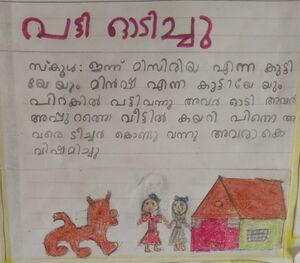 പട്ടി ഓടിച്ചു
സ്കൂൾ: ഇന്ന് മിസിരിയ എന്ന കുട്ടി
യേ യും മിൻഷ എന്ന കുട്ടിയേ യും
പിറകിൽ പട്ടി വന്നു അവർ ഓടി അവർ
അപ്പുറത്തെ വീട്ടിൽ കയറി പിന്നെ അ
വരെ ടീച്ചർ കൊണ്ടു വന്നു അവരാകെ
വിഷമിച്ചു